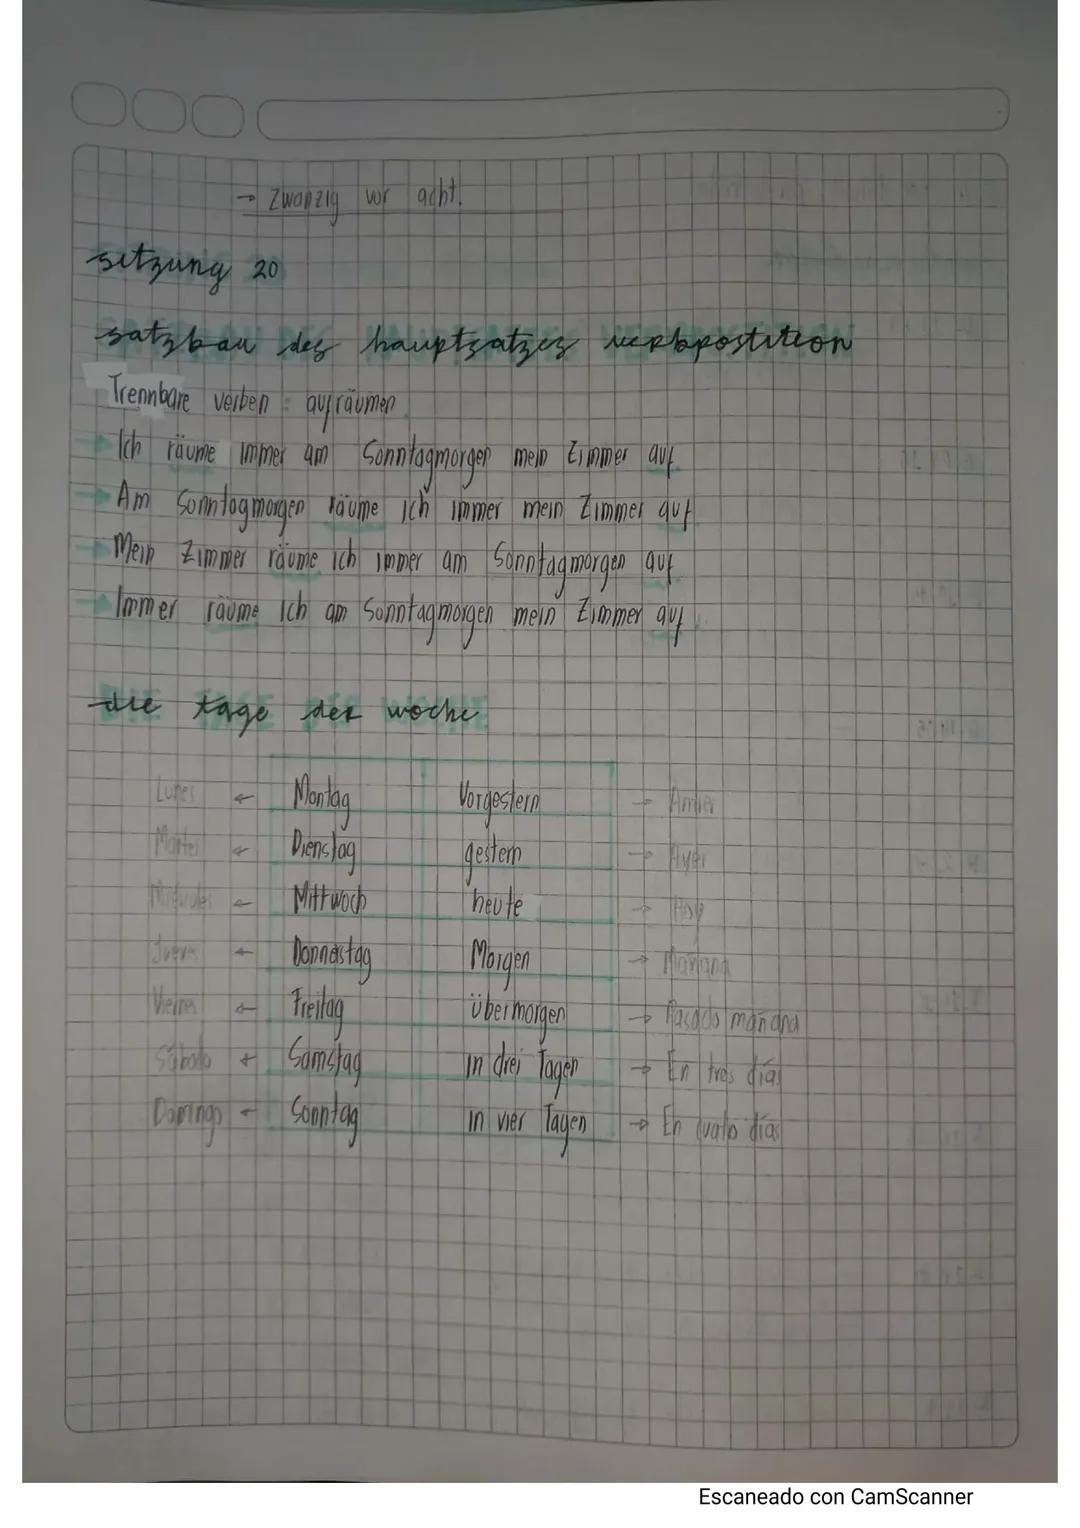 → Zwanzig vor acht.
sitzung 20
satzbau des hauptsatzes verbpostition
Trennbare verben : aufräumen
→ Ich räume immer am Sonntagmorgen mein Zimmer auf
→ Am Sonntagmorgen räume ich immer mein Zimmer auf
→ Mein Zimmer räume ich immer am Sonntagmorgen auf
→ Immer räume ich am Sonntagmorgen mein Zimmer auf
die tage der woche
Lunes ← Montag Vorgestern → Antier
Martes ← Dienstag gestern → Ayer
Miércoles ← Mittwoch heute → Hoy
Jueves ← Donnerstag Morgen → Mañana
Viernes ← Freitag übermorgen → Pasado mañana
Sábado ← Samstag in drei Tagen → En tres días
Domingo ← Sonntag in vier Tagen → En cuatro días
Escaneado con CamScanner